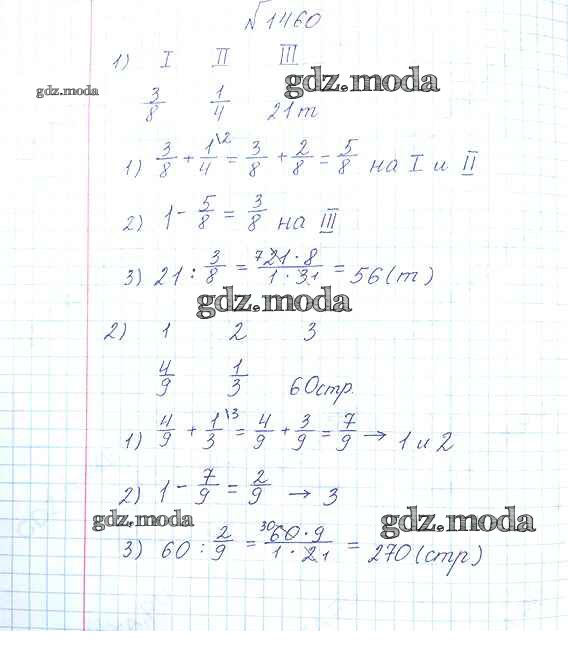 №1460
1) I II III
gdz.moda
gdz.moda
3/8 1/4 21т
1) 3/8 + 1/4 \2 = 3/8 + 2/8 = 5/8 на I и II
2) 1 - 5/8 = 3/8 на III
3) 21 : 3/8 = 7 21 · 8 / 1 · 3 1 = 56 (т)
gdz.moda
2) 1 2 3
4/9 1/3 60стр.
1) 4/9 + 1/3 \3 = 4/9 + 3/9 = 7/9 → 1 и 2
2) 1 - 7/9 = 2/9 → 3
gdz.moda
gdz.moda
3) 60 : 2/9 = 30 60 · 9 / 1 · 2 1 = 270 (стр)